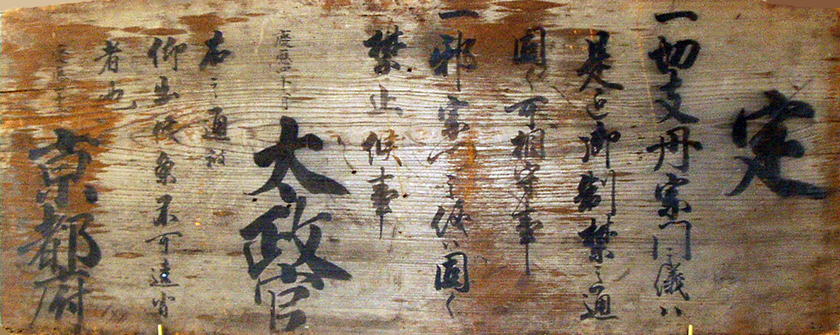 定
一切支丹宗門之儀ハ
是迄御制禁之通
固く可相守事
一邪宗門之儀ハ固く
禁止候事
慶應
太政官
右之通被
仰出候条不可違背
者也
京都府